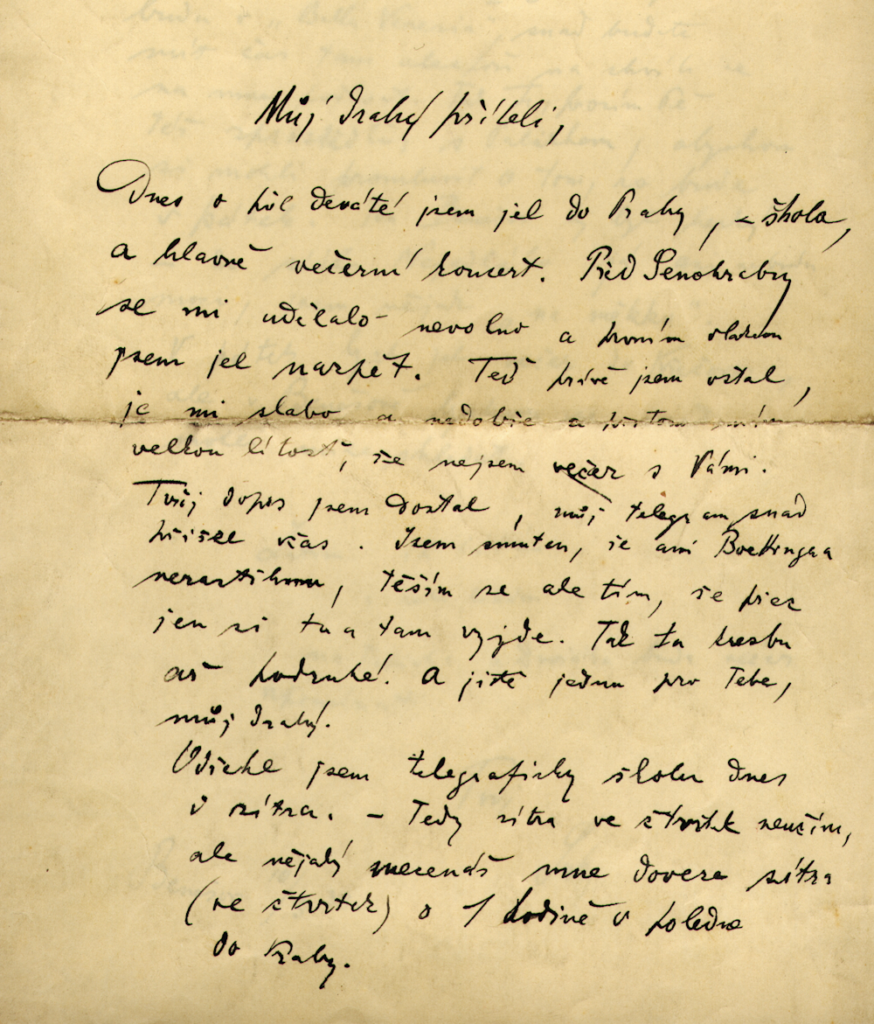 Můj drahý příteli,
Dnes o půl deváté jsem jel do Prahy, – škola,
a hlavně večerní koncert. Před Senohraby
se mi udělalo nevolno a prvním vlakem
jsem jel nazpět. Teď právě jsem vstal,
je mi slabo a nedobře a přitom mám
velkou lítost, že nejsem večer s Vámi.
Tvůj dopis jsem dostal, můj telegram snad
přišel včas. Jsem smuten, že ani Boettingra
nezastihnu, těším se ale tím, že přes
jen si tu a tam vyjde. Tak tu kresbu
až podruhé. A jistě jednu pro Tebe,
můj drahý.
Odřekl jsem telegraficky školu dnes
i zítra. – Tedy zítra ve čtvrtek neučím,
ale nějaký mecenáš mne doveze zítra
(ve čtvrtek) o 1 hodině v poledne
do Prahy.